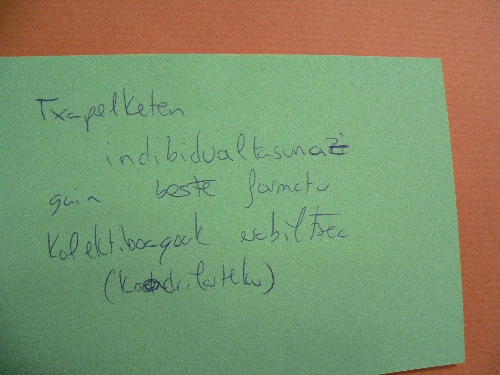 Txapelketen
indibidualtasunaz
gain beste formatu
kolektiboagoak erabiltzea
(koadrilateku)